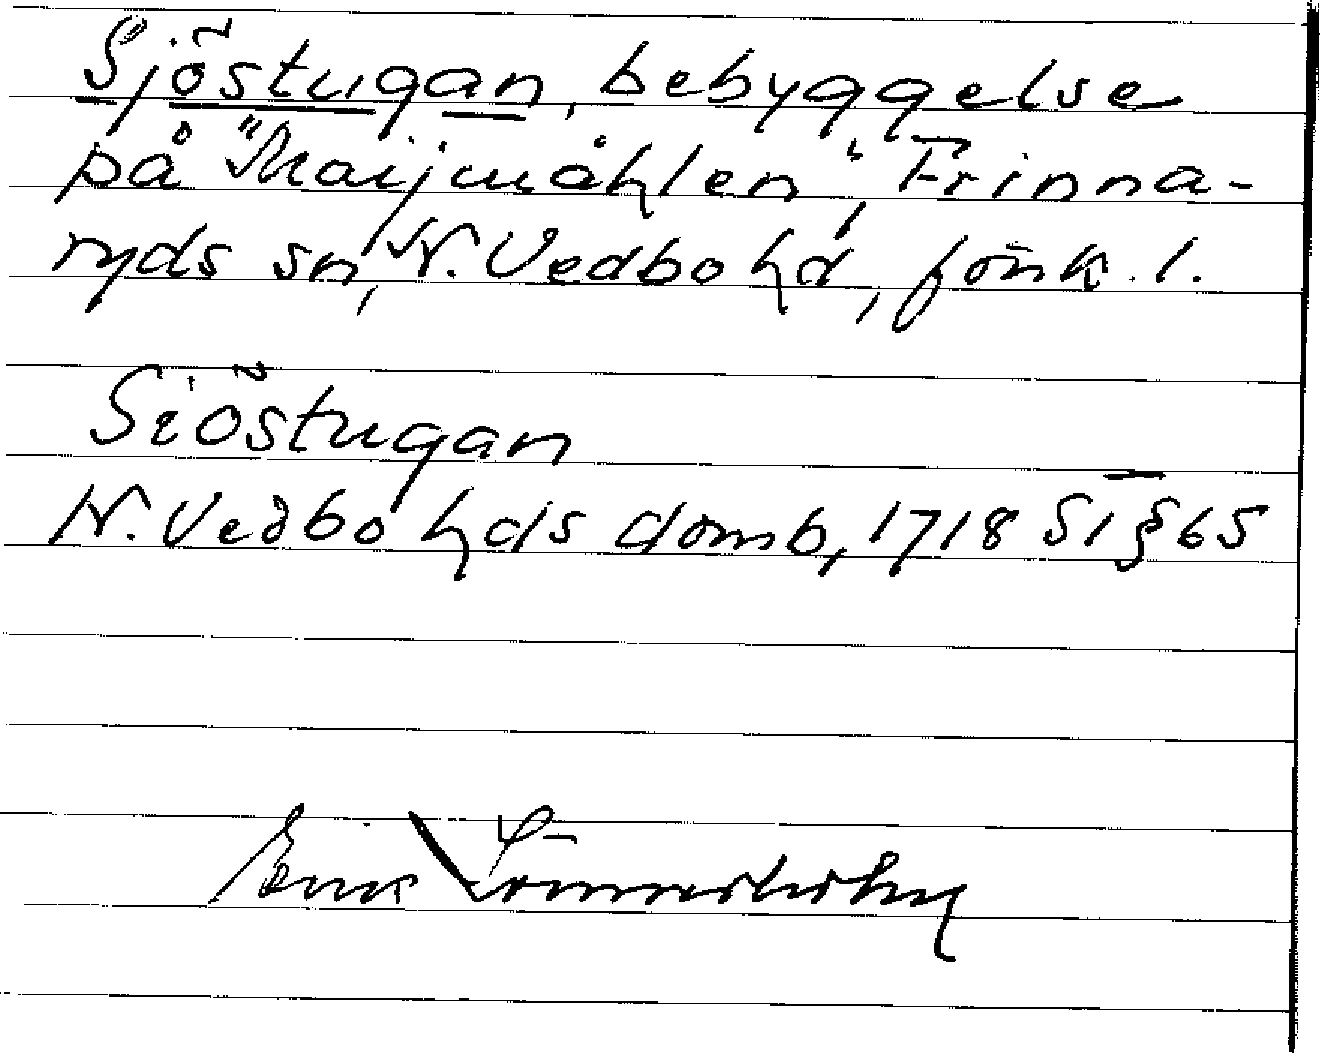 Sjöstugan, bebyggelse
på "Maijmåhlen", Frinna-
ryds sn, N. Vedbo hd, Jönk. l.
Siöstugan
N. Vedbo hds domb, 1718 S1 § 65